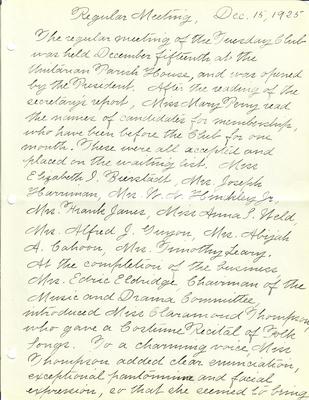 Regular Meeting, Dec. 15, 1925
The regular meeting of the Tuesday Club
was held December fifteenth at the
Unitarian Parish House, and was opened
by the President. After the reading of the
secretary's report, Miss Mary Perry read
the names of candidates for membership,
who have been before the Club for one
month. These were all accepted and
placed on the waiting list. Miss
Elizabeth I. Beerstadt, Mrs. Joseph
Harriman, Mrs. W. N. Hinckley Jr,
Mrs. Frank Janes, Miss Anna S. Weld,
Mrs. Alfred J. Guyon, Mrs. Abijah
A. Cahoon, Mrs. Timothy Leary.
At the completion of the business,
Mrs. Edric Eldridge, Chairman of the
Music and Drama Committee,
introduced Miss Claramond Thompson,
who gave a Costume Recital of Folk
Songs. To a charming voice, Miss
Thompson added clear enunciation,
exceptional pantomime and facial
expression, so that she seemed to bring